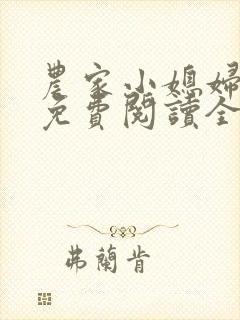 農家小媳婦
免費閱讀全
弗蘭肯